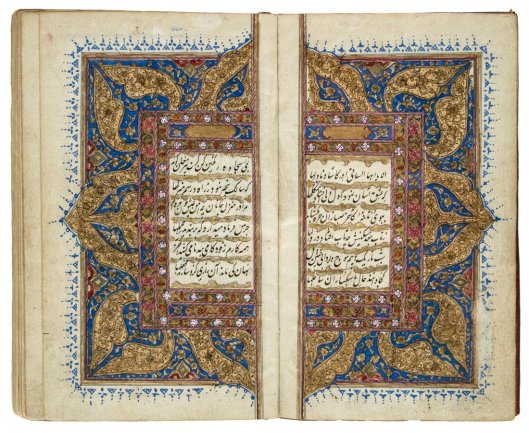 الا یا ایها الساقی ادر کاسا و ناولها
که عشق آسان نمود اول ولی افتاد مشکلها
ببوی نافه کاخر صبا زان طره بگشاید
ز تاب جعد مشکینش چه خون افتاد در دلها
شب تاریک و بیم موج و گردابی چنین هایل
کجا دانند حال ما سبکباران ساحلها
بمی سجاده رنگین کن گرت پیر مغان گوید
که سالک بیخبر نبود ز راه و رسم منزلها
مرا در منزل جانان چه امن عیش چون هر دم
جرس فریاد میدارد که بربندید محملها
همه کارم ز خود کامی ببدنامی کشید آخر
نهان کی ماند آن رازی کزو سازند محفلها